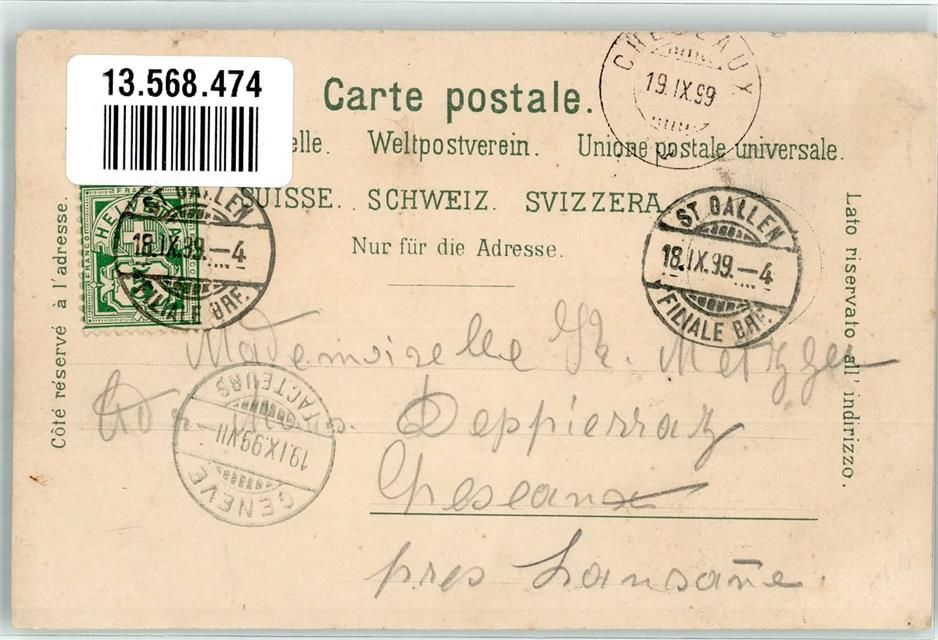 13.568.474
Carte postale.
elle. Weltpostverein. Unione postale universale.
SUISSE. SCHWEIZ. SVIZZERA.
Nur für die Adresse.
Côté réservé à l'adresse.
Lato riservato all' indirizzo.
CHESEAUX
19.IX.99
ST. GALLEN
18.IX.99.–4
FILIALE BRF.
ST. GALLEN
18.IX.99.–4
FILIALE BRF.
HELVETIA
FRANCO
GENEVE
19.IX.99.VII
FACTEURS
Mademoiselle Metzger
Deppierraz
Cheseaux
près Lausanne.